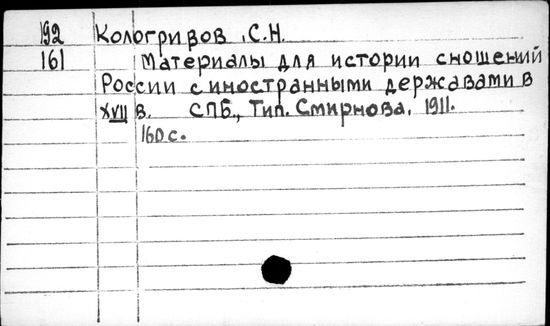 192 Кологривов ,С.Н.
161 Материалы для истории сношений
России с иностранными державами в
XVII в. СПБ., Тип. Смирнова. 1911.
160с.